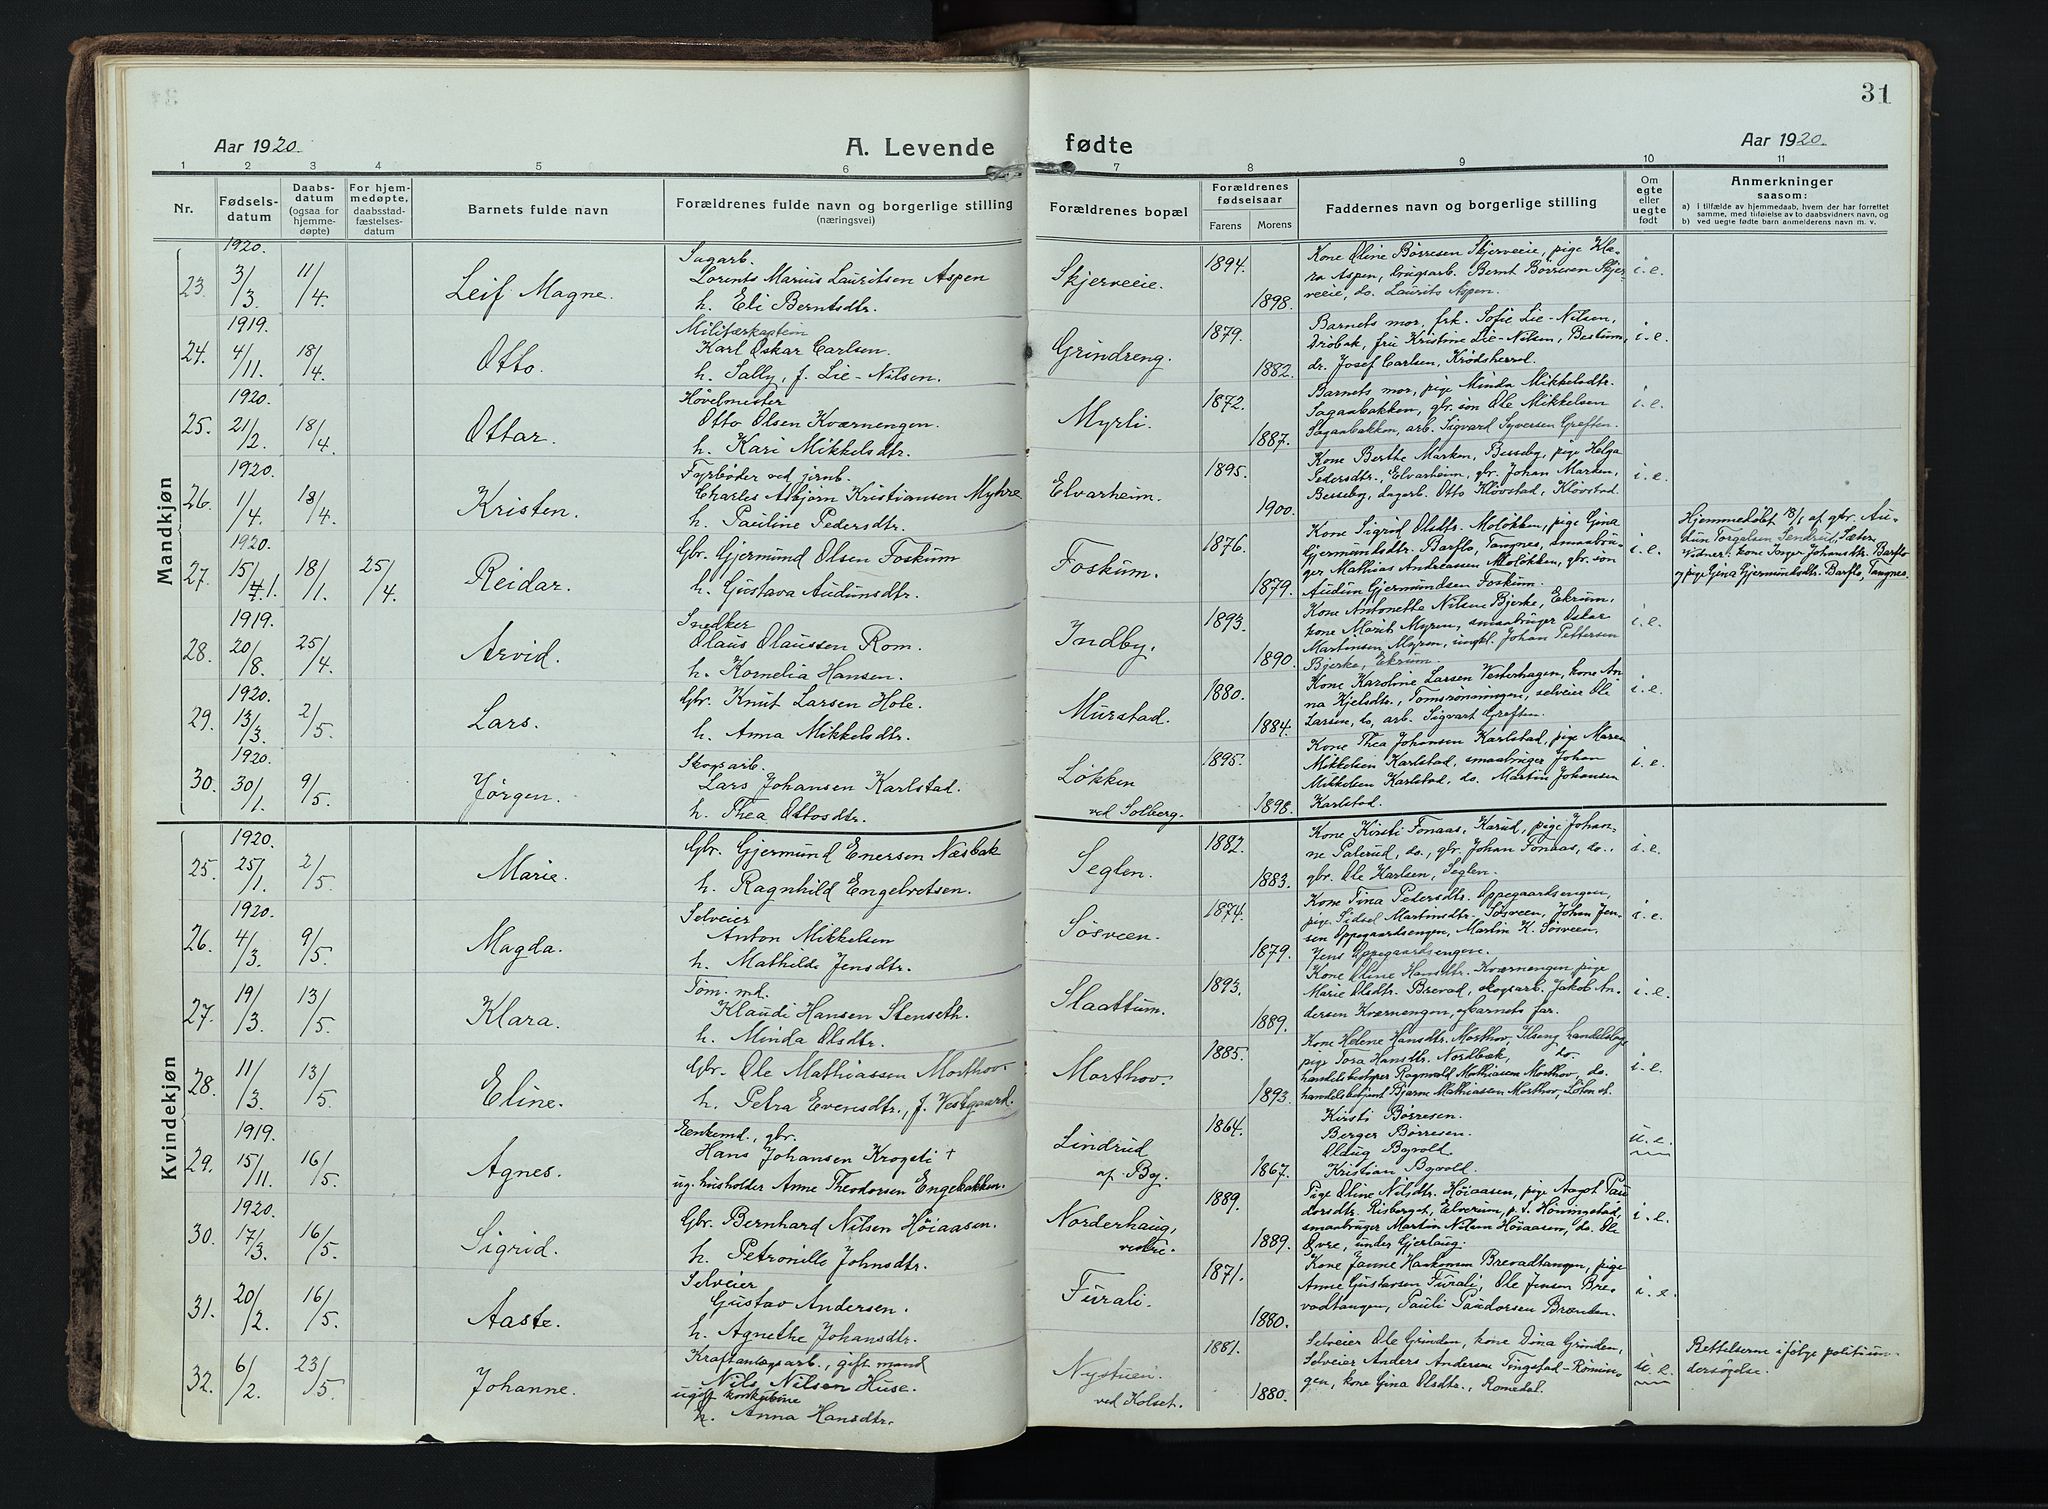 31
Aar 1920.
A. Levende fødte
Aar 1920.
1 2 3 4 5 6 7 8 9 10 11
Nr.
Fødsels-
datum
Daabs-
datum
(ogsaa for
hjemme-
døpte)
For hjem-
medøpte,
daabsstad-
fæstelses-
datum
Barnets fulde navn
Forældrenes fulde navn og borgerlige stilling
(næringsvei)
Forældrenes bopæl
Forældrenes
fødselsaar
Farens Morens
Faddernes navn og borgerlige stilling
Om
egte
eller
uegte
født
Anmerkninger
saasom:
a) i tilfælde av hjemmedaab, hvem der har forrettet
samme, med tilføielse av to daabsvidners navn, og
b) ved uegte fødte barn anmelderens navn m. v.
Mandkjøn
1920.
23. 3/3 11/4 Leif Magne.
Sagarb.
Lorents Marius Lauritsen Aspen
h. Eli Berntsdtr.
Skjerveie.
1894.
1898.
Kone Oline Børresen Skjerveie, pige Kla-
ra Aspen, brugsarb. Bernt Børresen Skjer
veeie, do. Laurits Aspen.
i. e.
1919.
24. 4/11. 18/4 Otto.
Militærkaptein
Karl Oskar Carlsen.
h. Sally, f. Lie-Nilsen.
Grindreng.
1879.
1882.
Barnets mor, frk. Sofie Lie-Nilsen,
Drøbak, fru Kristine Lie-Nilsen, Bestum,
dr. Josef Carlsen, Krødsherred.
i. e.
1920.
25. 21/2. 18/4 Ottar.
Høvelmester
Otto Olsen Kværnengen.
h. Kari Mikkelsdtr.
Myrli.
1872.
1887.
Barnets mor, pige Minda Mikkelsdtr.
Saganbakken, gbr. søn Ole Mikkelsen
Saganbakken, arb. Sigvard Syversen Greften.
i. e.
1920.
26. 1/4. 18/4. Kristen.
Fyrbøder ved jernb.
Charles Asbjørn Kristiansen Myhre
h. Pauline Pedersdtr.
Elvarheim.
1895.
1900.
Kone Berthe Marken, Besseby, pige Helga
Pedersdtr., Elvarheim, gbr. Johan Marken,
Besseby, dagarb. Otto Kløvstad, Kløvstad.
i. e.
1920.
27. 15/1. 18/1. 25/4. Reidar.
Gbr. Gjermund Olsen Foskum
h. Gustava Audunsdtr.
Foskum.
1876.
1879.
Kone Sigrid Olsdtr. Moløkken, pige Gina
Gjermundsdtr. Barflo, Tangnes, smaabru-
ger Mathias Andreassen Moløkken, gbr. søn
Audun Gjermundsen Foskum.
i. e.
Hjemmedøbt 18/1 af gbr. Au-
dun Torgalsen Sendrud, Sæter.
Vidner: kone Inger Johansdtr. Barflo
og pige Gina Gjermundsdtr. Barflo, Tangnes.
1919.
28. 20/8. 25/4 Arvid.
Snedker
Olaus Olaussen Rom.
h. Kornelia Hansen.
Indby.
1893.
1890.
Kone Antonette Nilsen Bjerke, Ekrum,
kone Marit Myren, smaabruger Oskar
Martinsen Myren, ungkl. Johan Pettersen
Bjerke, Ekrum.
i. e.
1920.
29. 13/3. 2/5. Lars.
Gbr. Knut Larsen Hole.
h. Anna Mikkelsdtr.
Murstad.
1880.
1884.
Kone Karoline Larsen Vesterhagen, kone An
na Kjelsdtr., Tomsrønningen, selveier Ole
Larsen, do, arb. Sigvart Greften.
i. e.
1920.
30. 30/1. 9/5. Jørgen.
Skogsarb.
Lars Johansen Karlstad.
h. Thea Ottosdtr.
Løkken
ved Solberg.
1895.
1898.
Kone Thea Johansen Karlstad, pige Maren
Mikkelsen Karlstad, smaabruger Johan
Mikkelsen Karlstad, do. Martin Johansen
Karlstad.
i. e.
Kvindekjøn
1920.
25. 25/1. 2/5. Marie.
Gbr. Gjermund Enersen Næsbak
h. Ragnhild Engebretsen.
Seglen.
1882.
1883.
Kone Kirsti Fonaas, Karud, pige Johan-
ne Palerud, do., gbr. Johan Fonaas, do.,
gbr. Ole Karlsen, Seglen.
i. e.
1920.
26. 4/3. 9/5. Magda.
Selveier
Anton Mikkelsen
h. Mathilde Jensdtr.
Søsveen.
1874.
1879.
Kone Tina Pedersdtr. Oppegaardsengen,
pige Sidsel Martinsdtr. Søsveen, Johan Jen-
sen Oppegaardsengen, Martin K. Søsveen,
Jens Oppegaardsengen.
i. e.
27. 19/3. 13/5. Klara.
Tøm. md.
Klaudi Hansen Stenseth.
h. Minda Olsdtr.
Slaattum.
1893.
1889.
Kone Oline Hansdtr. Kværnengen pige
Marie Olsdtr. Brevad, skogsarb. Jakob An-
dersen Kværnengen, og barnets far.
i. e.
28. 11/3. 13/5. Eline.
Gbr. Ole Mathiassen Morthov.
h. Petra Evensdtr., f. Vestgaard.
Morthov.
1885.
1893.
Kone Helene Hansdtr. Morthov, Ilseng handelslage
pige Tora Hansdtr. Nordbæk, do.
handelsbestyrer Ragnvald Mathiasen Morthov, do.
handelsbetjent Bjarne Mathiassen Morthov, Løten st.
i. e.
1919.
29. 15/11. 16/5. Agnes.
Enkemd., gbr.
Hans Johansen Krogsti +
ug. husholder Anne Theodorsen Engebakken.
Lindrud
af By.
1864.
1867.
Kirsti Børresen.
Berger Børresen.
Oldug Byvold.
Kristian Byvold.
u. e.
1920.
30. 17/3. 16/5. Sigrid.
Gbr. Bernhard Nilsen Høiaasen.
h. Petronille Johnsdtr.
Norderhaug,
vestre.
1889.
1889.
Pige Oline Nilsdtr. Høiaasen, pige Aagot Pau
dorsdtr. Risberget, Elverum, p. t. Hørningstad,
smaabruger Martin Nilsen Høiaasen, do. Ole
Øvre, under Gjerlaug.
i. e.
31. 20/2. 16/5. Aaste.
Selveier
Gustav Andersen.
h. Agnethe Johansdtr.
Furali.
1871.
1880.
Kone Janne Haakonsen Brevadtangen, pige
Anne Gustavsen Furali, Ole Jensen Bre-
vadtangen, Pauli Paudorsen Brænden.
i. e.
32. 6/2. 23/5. Johanne.
Kraftanlægsarb., gift mand
Nils Nilsen Huse.
ugift konkubine
h. Anna Hansdtr.
Nystuen.
ved Kolset.
1881.
1880.
Selveier Ole Grinden, kone Dina Grinden,
Selveier Anders Andersen Tingstad-Rømin-
gen, kone Gina Olsdtr., Romedal.
u. e.
Rettelserne ifølge politiun-
dersøgelse.